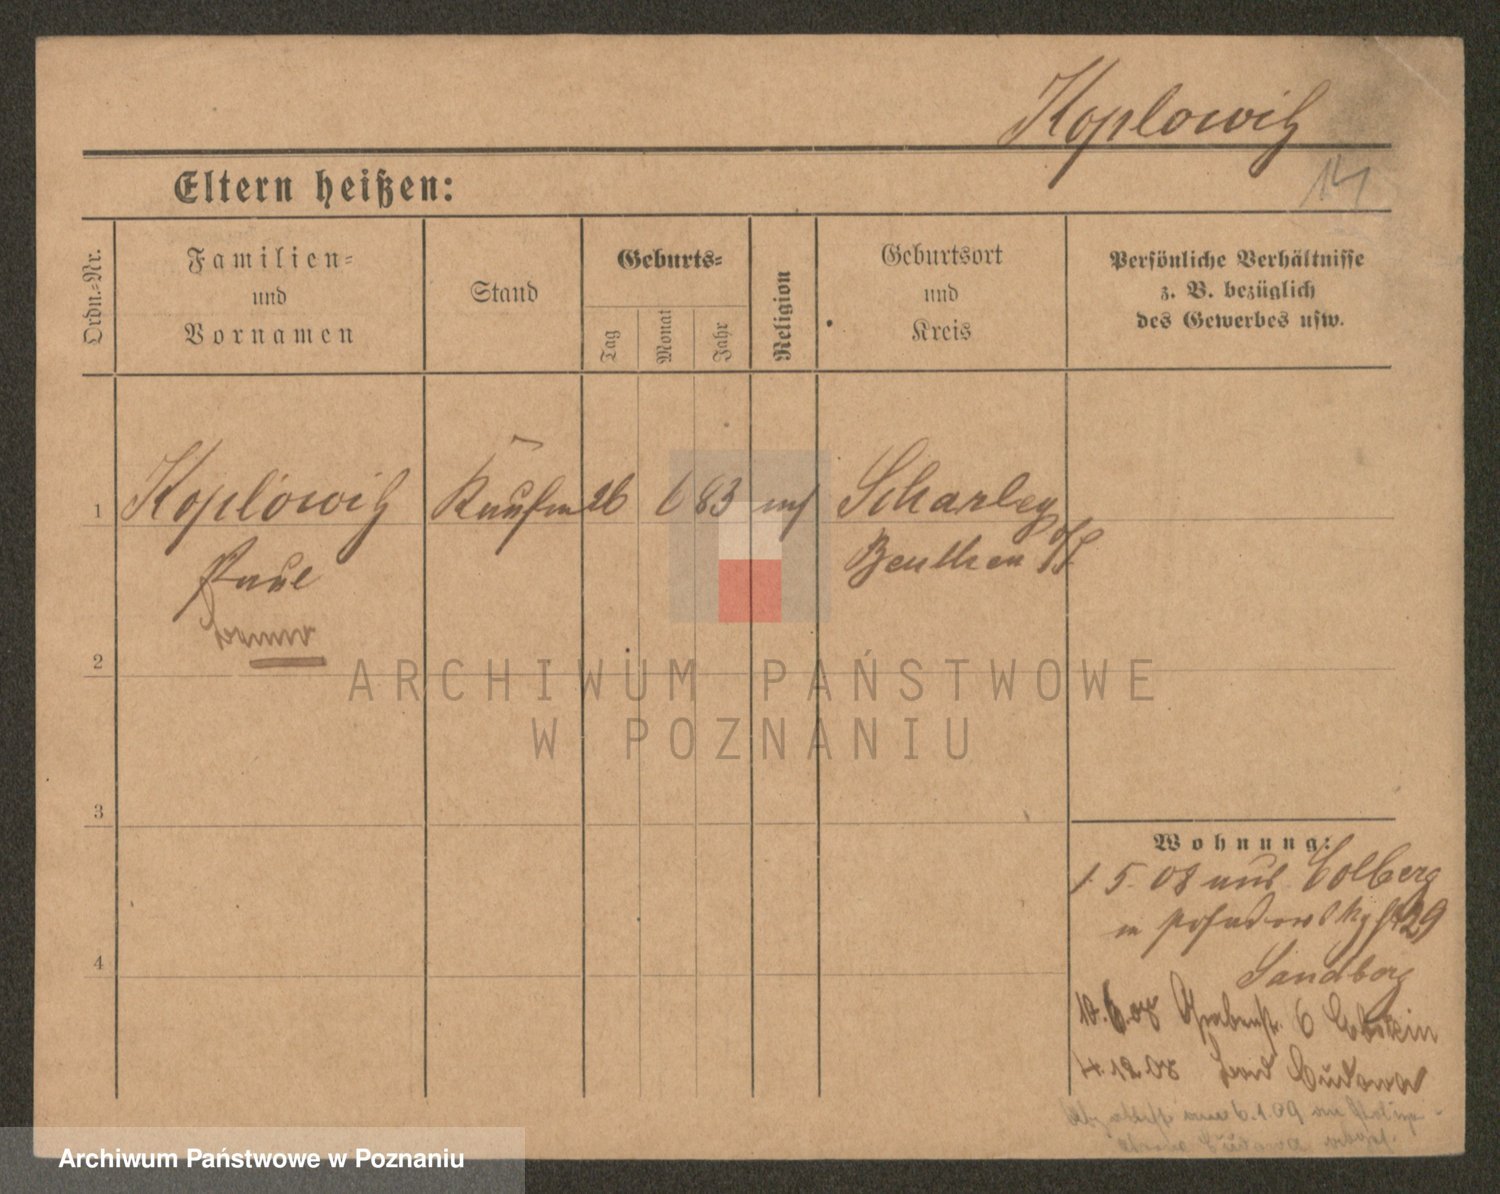 Koplowitz
14
Eltern heißen:
Ordn.-Nr.
Familien-
und
Vornamen
Stand
Geburts-
Tag
Monat
Jahr
Religion
Geburtsort
und
Kreis
Persönliche Verhältnisse
z. B. bezüglich
des Gewerbes usw.
1 Koplowitz Kaufm 26 6 83 Scharley
Paul
Beuthen O/S
2
3
4
Wohnung:
1. 5. 08 aus Colberg
in 29
Sandberg
10. 6. 08 Grabenstr. 6
4. 12. 08 Cudowa
6.1.09
ARCHIWUM PAŃSTWOWE
W POZNANIU
Archiwum Państwowe w Poznaniu